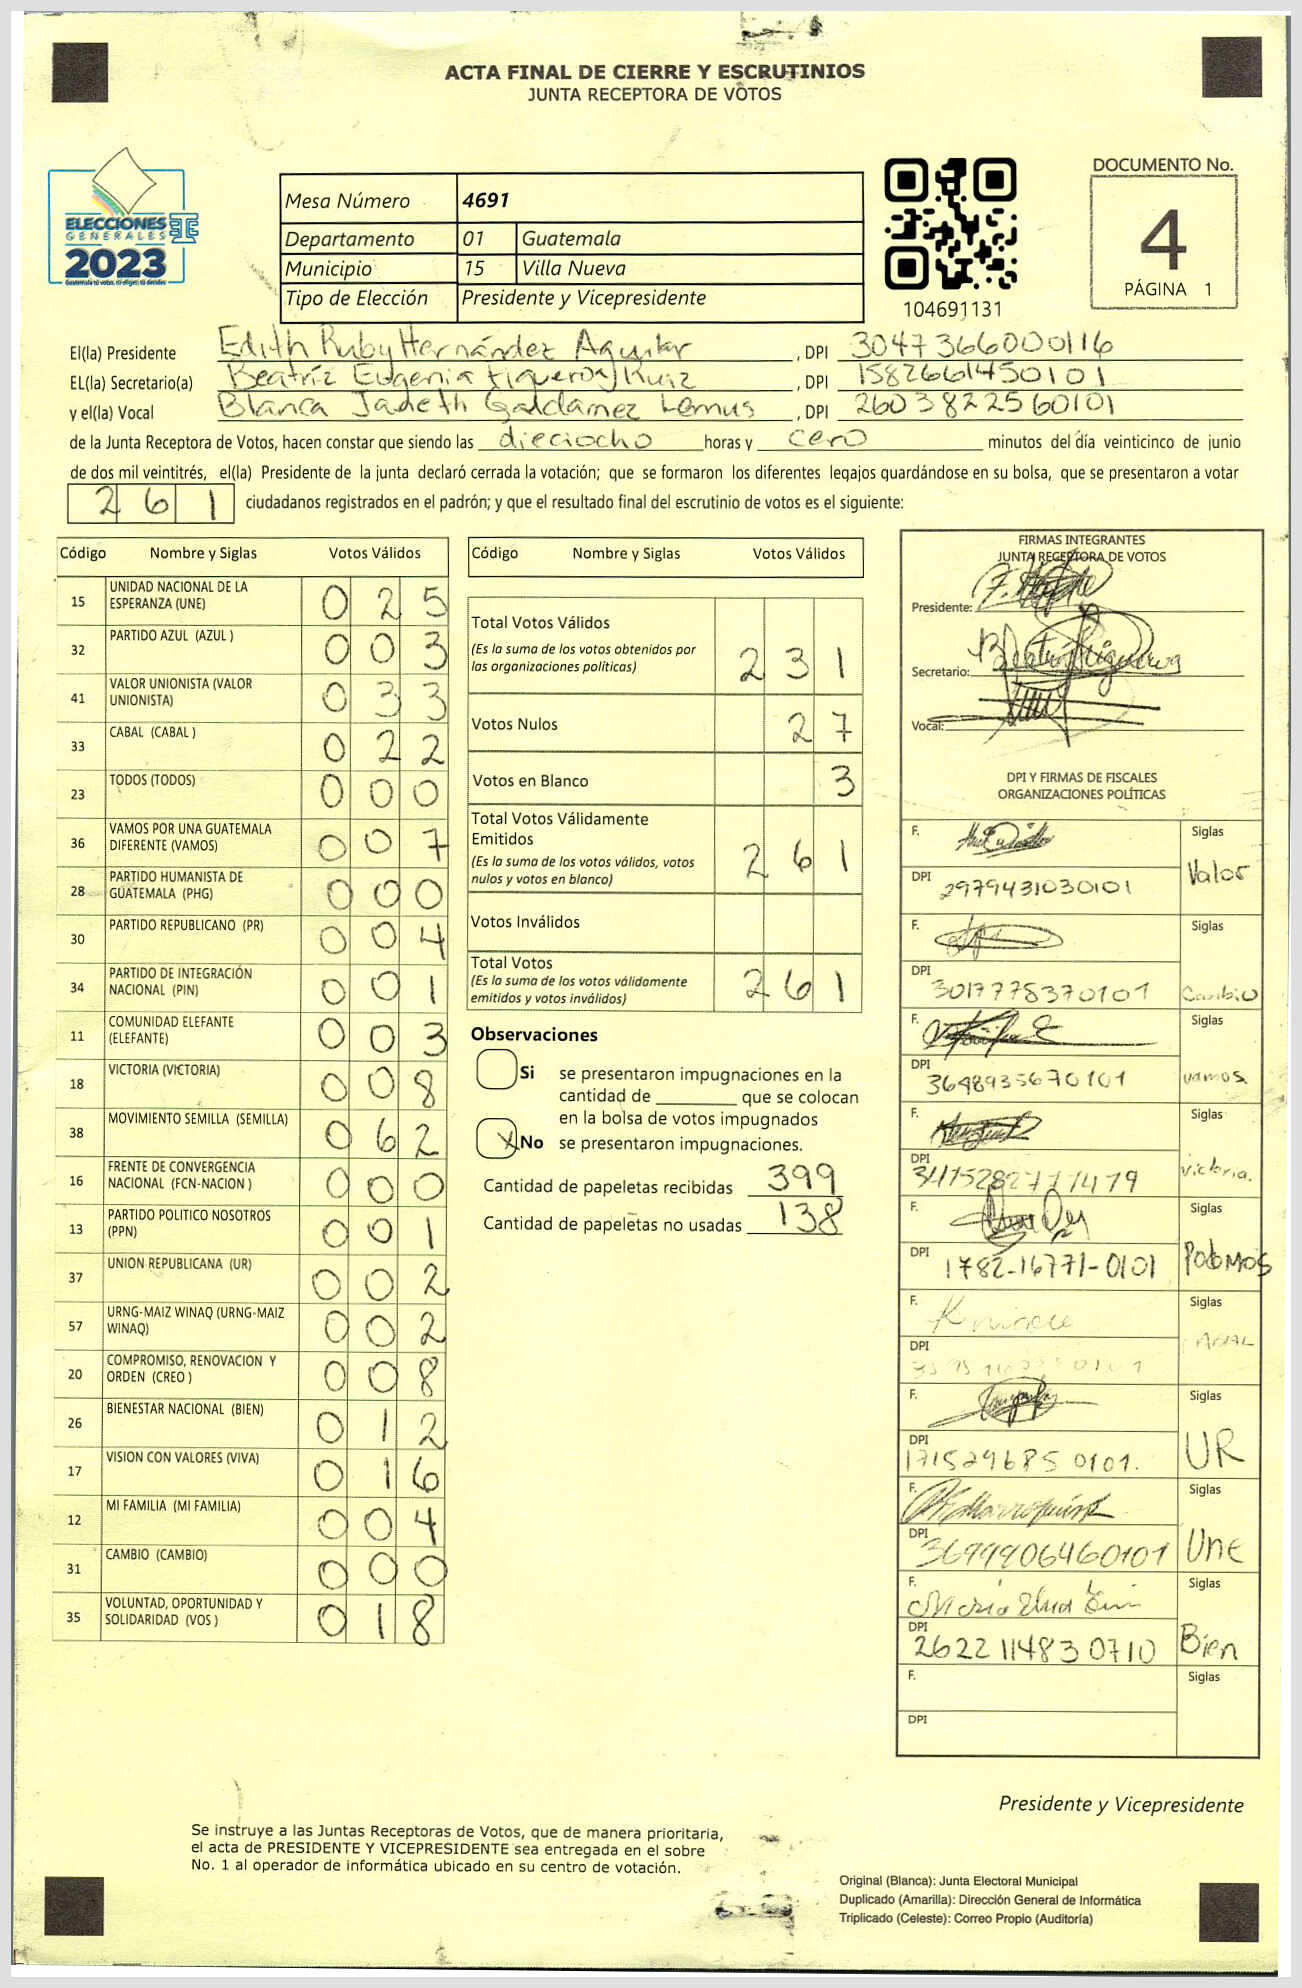 ACTA FINAL DE CIERRE Y ESCRUTINIOS
JUNTA RECEPTORA DE VOTOS
ELECCIONES
GENERALES
2023
Guatemala tú votas, tú eliges, tú decides
Mesa Número 4691
Departamento 01 Guatemala
Municipio 15 Villa Nueva
Tipo de Elección Presidente y Vicepresidente
104691131
DOCUMENTO No.
4
PÁGINA 1
El(la) Presidente Edith Ruby Hernández Aguilar, DPI 3047366000116
EL(la) Secretario(a) Beatríz Eugenia Figueroa Ruiz, DPI 1582661450101
y el(la) Vocal Blanca Janeth Galdamez Lemus, DPI 2603822560101
de la Junta Receptora de Votos, hacen constar que siendo las dieciocho horas y cero minutos del día veinticinco de junio
de dos mil veintitrés, el(la) Presidente de la junta declaró cerrada la votación; que se formaron los diferentes legajos guardándose en su bolsa, que se presentaron a votar
261 ciudadanos registrados en el padrón; y que el resultado final del escrutinio de votos es el siguiente:
Código Nombre y Siglas Votos Válidos
15 UNIDAD NACIONAL DE LA ESPERANZA (UNE) 025
32 PARTIDO AZUL (AZUL ) 003
41 VALOR UNIONISTA (VALOR UNIONISTA) 033
33 CABAL (CABAL ) 022
23 TODOS (TODOS) 000
36 VAMOS POR UNA GUATEMALA DIFERENTE (VAMOS) 007
28 PARTIDO HUMANISTA DE GUATEMALA (PHG) 000
30 PARTIDO REPUBLICANO (PR) 004
34 PARTIDO DE INTEGRACIÓN NACIONAL (PIN) 001
11 COMUNIDAD ELEFANTE (ELEFANTE) 003
18 VICTORIA (VICTORIA) 008
38 MOVIMIENTO SEMILLA (SEMILLA) 062
16 FRENTE DE CONVERGENCIA NACIONAL (FCN-NACION ) 000
13 PARTIDO POLITICO NOSOTROS (PPN) 001
37 UNION REPUBLICANA (UR) 002
57 URNG-MAIZ WINAQ (URNG-MAIZ WINAQ) 002
20 COMPROMISO, RENOVACION Y ORDEN (CREO ) 008
26 BIENESTAR NACIONAL (BIEN) 012
17 VISION CON VALORES (VIVA) 016
12 MI FAMILIA (MI FAMILIA) 004
31 CAMBIO (CAMBIO) 000
35 VOLUNTAD, OPORTUNIDAD Y SOLIDARIDAD (VOS ) 018
Código Nombre y Siglas Votos Válidos
Total Votos Válidos 231
(Es la suma de los votos obtenidos por
las organizaciones políticas)
Votos Nulos 27
Votos en Blanco 3
Total Votos Válidamente
Emitidos 261
(Es la suma de los votos válidos, votos
nulos y votos en blanco)
Votos Inválidos
Total Votos 261
(Es la suma de los votos válidamente
emitidos y votos inválidos)
Observaciones
Si se presentaron impugnaciones en la
cantidad de ________ que se colocan
en la bolsa de votos impugnados
X No se presentaron impugnaciones.
Cantidad de papeletas recibidas 399
Cantidad de papeletas no usadas 138
FIRMAS INTEGRANTES
JUNTA RECEPTORA DE VOTOS
Presidente:
Secretario:
Vocal:
DPI Y FIRMAS DE FISCALES
ORGANIZACIONES POLÍTICAS
F. Siglas Valor
DPI 2979431030101
F. Siglas Cambio
DPI 3017778370101
F. Siglas vamos
DPI 3648935670101
F. Siglas victoria.
DPI
F. Siglas Podemos
DPI 1782-16771-0101
F. Siglas
DPI
F. Siglas UR
DPI 171529685 0101.
F. Siglas Une
DPI 3699906460101
F. Siglas Bien
DPI 2622 11483 0710
F. Siglas
DPI
Presidente y Vicepresidente
Se instruye a las Juntas Receptoras de Votos, que de manera prioritaria,
el acta de PRESIDENTE Y VICEPRESIDENTE sea entregada en el sobre
No. 1 al operador de informática ubicado en su centro de votación.
Original (Blanca): Junta Electoral Municipal
Duplicado (Amarilla): Dirección General de Informática
Triplicado (Celeste): Correo Propio (Auditoría)